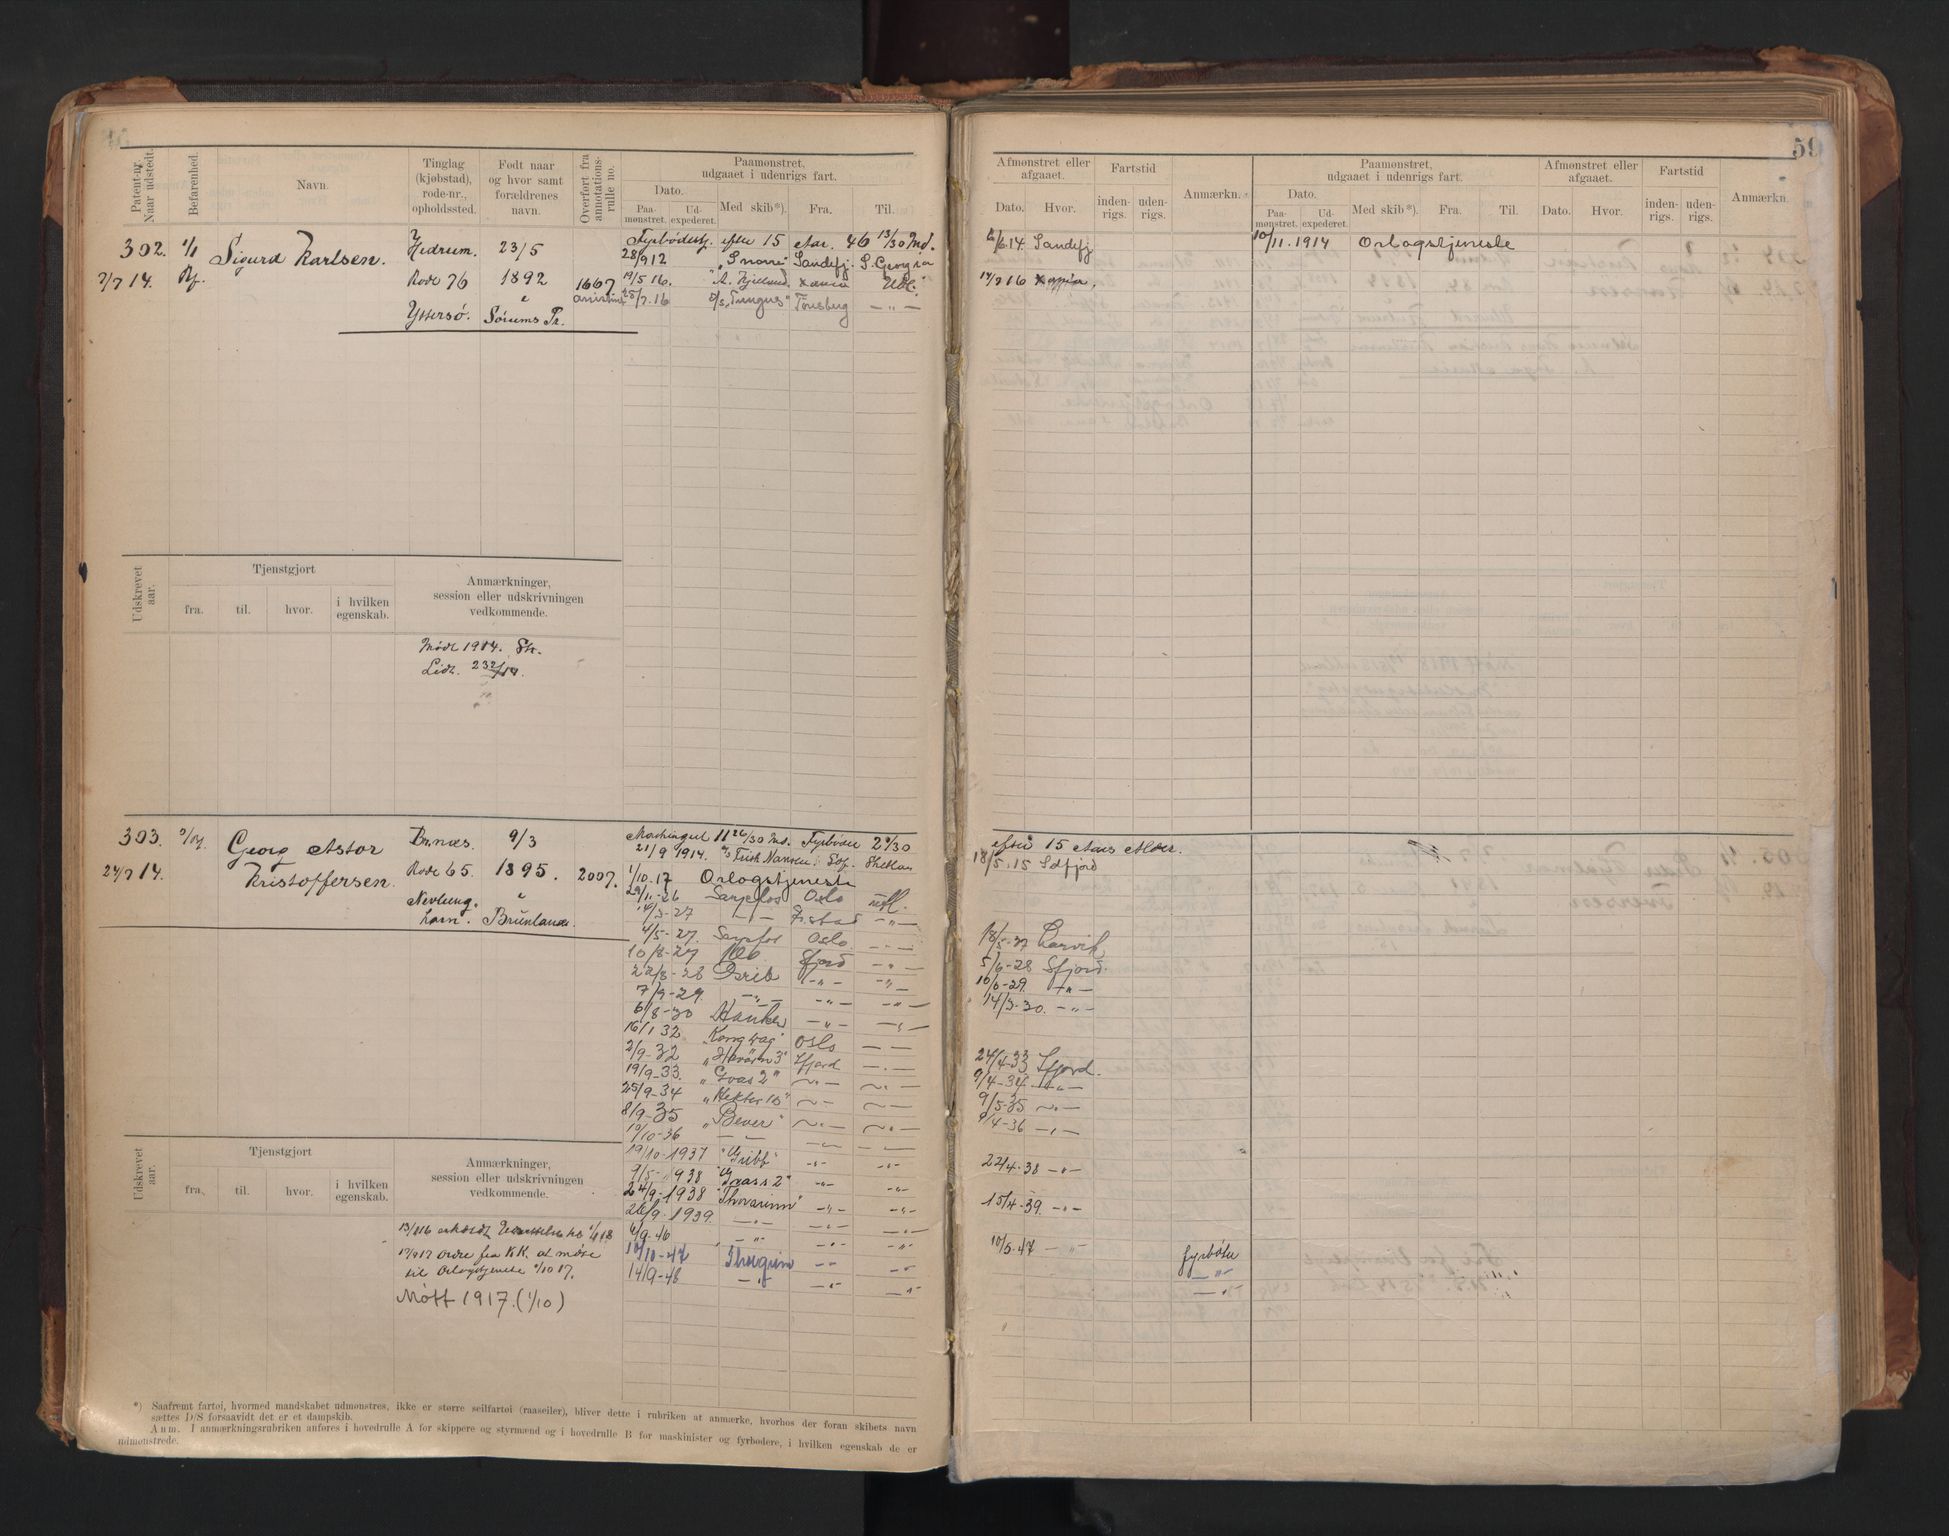 59
Patent-nr. Naar udstedt.
Befarenhed.
Navn.
Tinglag (kjøbstad), rode-nr., opholdssted.
Født naar og hvor samt forældrenes navn.
Overført fra annotations-rulle no.
Paamønstret, udgaaet i udenrigs fart.
Dato.
Paa-mønstret. Ud-expederet.
Med skib*). Fra. Til.
Afmønstret eller afgaaet.
Dato. Hvor.
Fartstid
inden-rigs. uden-rigs.
Anmærkn.
Paamønstret, udgaaet i udenrigs fart.
Dato.
Paa-mønstret. Ud-expederet.
Med skib*). Fra. Til.
Afmønstret eller afgaaet.
Dato. Hvor.
Fartstid
inden-rigs. uden-rigs.
Anmærkn.
302. 1/1 Sigurd Karlsen. Hedrum. 23/5
7/7 14. Rode 76 1892 1667.
Yttersø. Sørums Pr.
Fyrbødertj. efter 15 Aar. 46 13/30 Md.
28/9 12 "Snorre" Sandefj. S. Georgia
19/5 16. "A. Kjelland" Xania Udl.
25/7.16 D/s "Tungus" Tønsberg — " —
6/6 14 Sandefj
14/7 16 Xania.
10/11. 1914 Orlogstjeneste
Udskrevet aar.
Tjenstgjort
fra. til. hvor. i hvilken egenskab.
Anmærkninger, session eller udskrivningen vedkommende.
Mødt 1914.
Lidt. 232/14.
303. Georg Astor Kristoffersen. Brunlanes. 9/3
24/7 14. Rode 65. 1895. 2007.
Nevlung-havn. Brunlanes.
Maskingut 11 26/30 Md. Fyrbøder 2 9/30
efter 15 Aars Alder.
21/9 1914. Fridt Nansen. Sdf. Shetland
18/5. 15 Sdfjord
1/10. 17 Orlogstjeneste
29/11-26 Sarpefos Oslo utl.
14/3-27 — " — — " —
4/5-27. Sarpfos Oslo. — " —
18/5-27 Larvik
10/8-27 Sfjord — " —
5/6-28 Sfjord.
22/8-28 — " — — " —
10/6-29. — " —
7/9-29. — " — — " — — " —
14/3-30. — " —
6/8-30 — " — — " —
16/1 32 "Kong Dag" Oslo — " —
2/9-32 "Hvorn 3" Sfjord — " —
24/4-33 Sfjord.
19/9-33. "Gvas 2" — " — — " —
9/4-34 — " —
25/9-34 "Hektor 10" — " — — " —
9/5-35 — " —
8/9-35 "Bever" — " — — " —
9/4-36 — " —
10/10-36 — " — — " — — " —
19/10-1937 "Gribb" — " — — " —
22/4-38 — " —
9/5-1938 "Gvass 2" — " — — " —
24/9-1938 "Thorarinn" — " — — " —
15/4-39. — " —
26/9-1939. — " — — " — — " —
6/9-46 — " — — " — — " —
10/5-47 — " — fyrbøter
10/10-47 Thorgrim — " — — " — — " —
14/9-48 — " — — " — — " — — " —
Udskrevet aar.
Tjenstgjort
fra. til. hvor. i hvilken egenskab.
Anmærkninger, session eller udskrivningen vedkommende.
17/9 17 Ordre fra KK. at møte
til Orlogstjeneste 1/10 17.
Møtt 1917. (1/10)
*) Saafremt fartøi, hvormed mandskabet udmønstres, ikke er større seilfartøi (raaseiler), bliver dette i rubriken at anmærke, hvorhos der foran skibets navn
sættes D/S forsaavidt det er et dampskib.
Anm. I anmærkningsrubriken anføres i hovedrulle A for skippere og styrmænd og i hovedrulle B for maskinister og fyrbødere, i hvilken egenskab de er
udmønstrede.